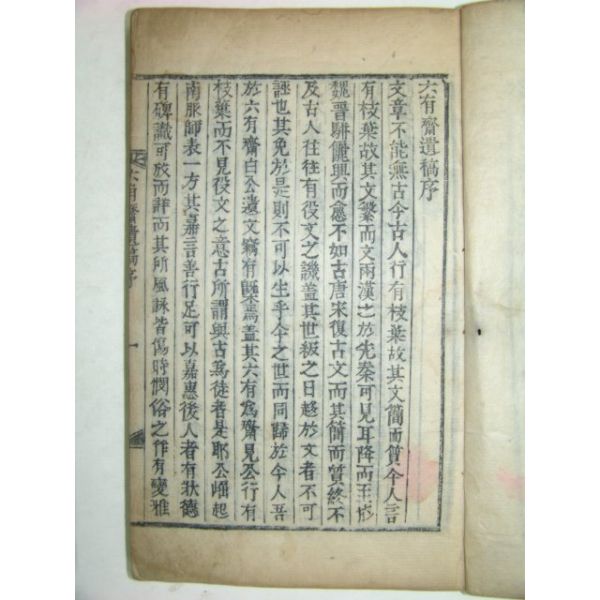 六有齋遺稿序
文章不能無古今古人行有枝葉故其文簡而質今人言
有枝葉故其文繁而文兩漢之於先秦可見耳降而至於
魏晋騈儷興而愈不如古唐宋復古文而其簡而質終不
及古人往往有役文之譏盖其世級之日趍於文者不可
誣也其免於是則不可以生乎今之世而同歸於今人吾
於六有齋白公遺文竊有感焉盖其六有爲齋見公行有
枝葉而不見役文之意古所謂與古爲徒者是耶公崛起
南服師表一方其嘉言善行足可以嘉惠後人者有狀德
有碑識可攷而詳而其所風詠皆傷時憫俗之作有變雅
六有齋遺稿序
一